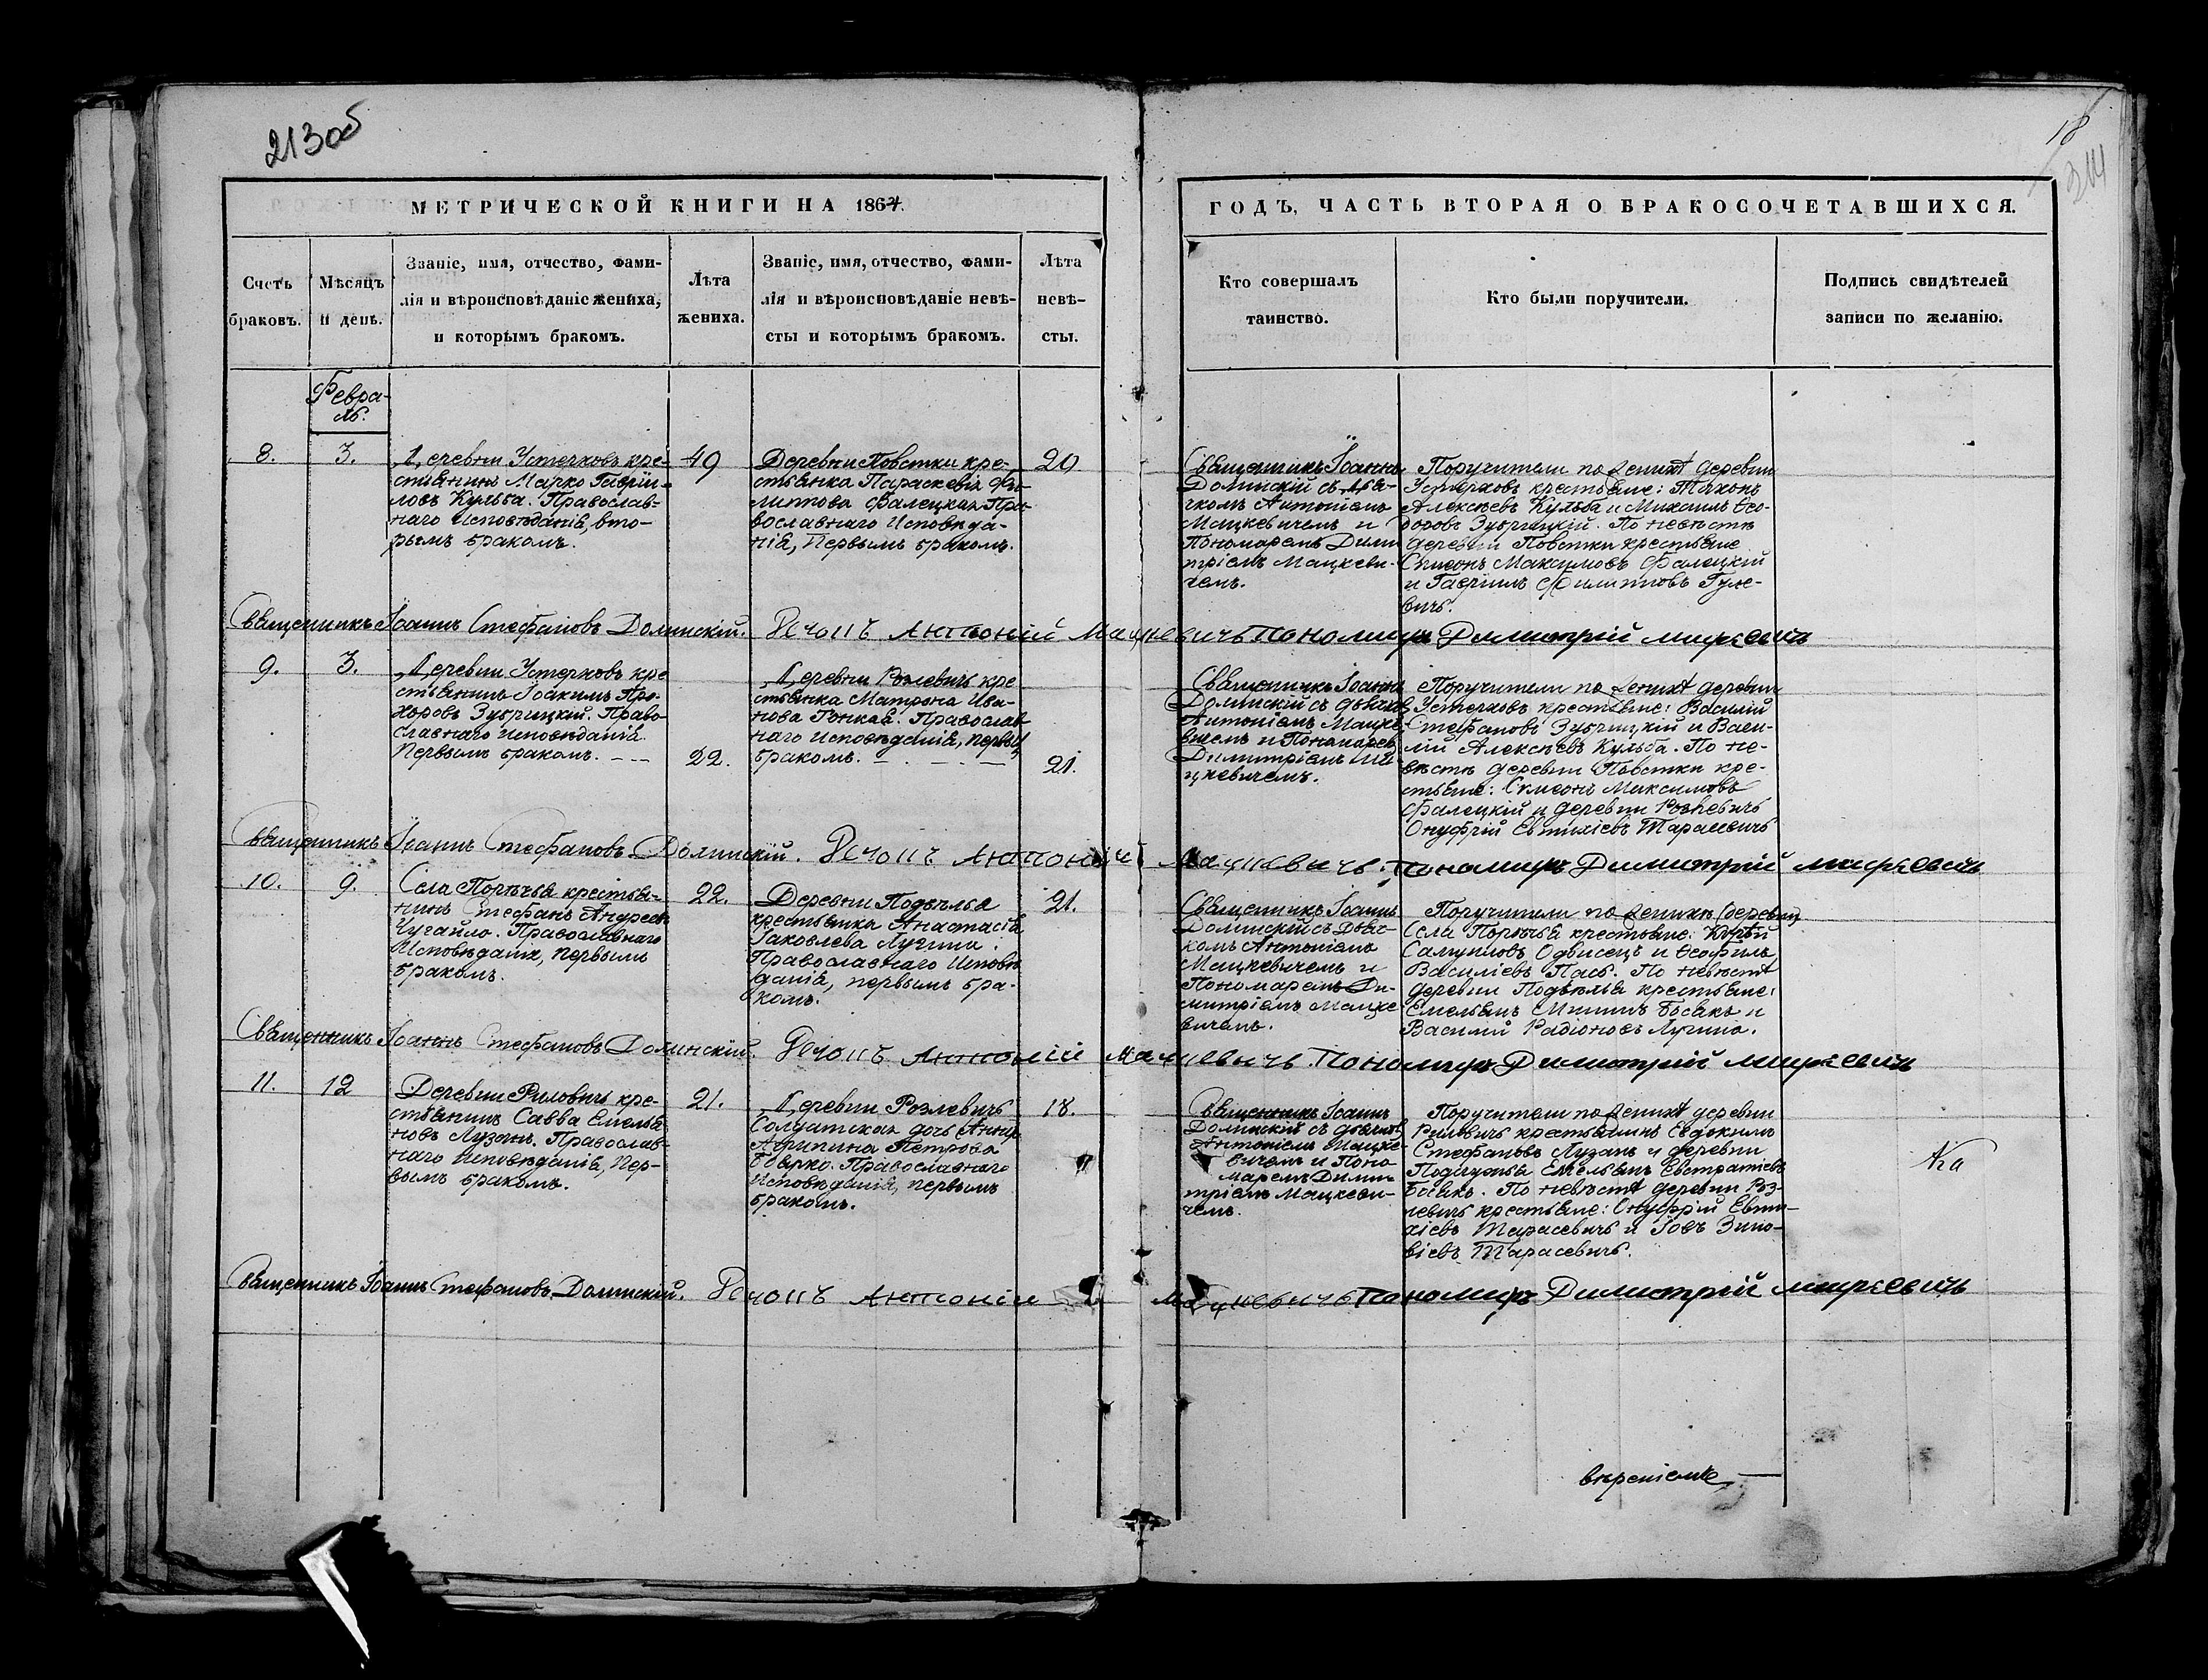 213об
18
314
МЕТРИЧЕСКОЙ КНИГИ НА 1864.
Счетъ
браковъ.
Мѣсяцъ
и день.
Званіе, имя, отчество, фами-
лія и вѣроисповѣданіе жениха,
и которымъ бракомъ.
Лѣта
жениха.
Званіе, имя, отчество, фами-
лія и вѣроисповѣданіе невѣ-
сты и которымъ бракомъ.
Лѣта
невѣ-
сты.
ГОДЪ, ЧАСТЬ ВТОРАЯ О БРАКОСОЧЕТАВШИХСЯ.
Кто совершалъ
таинство.
Кто были поручители.
Подпись свидѣтелей
записи по желанію.
Февра-
ль.
8.
3.
Деревни Устерховъ кре-
стьянинъ Марко Гаврiи-
ловъ Кульба. Православ-
наго Исповѣданія, вто-
рымъ бракомъ.
49
Деревни Повстки кре-
стьянка Параскевія Фи-
липпова Фалецкая Пра-
вославнаго Исповѣда-
нія, Первымъ бракомъ.
20
Священникъ Іоаннъ
Долинскій съ дья-
чкомъ Антоніемъ
Мацкевичемъ и
Пономаремъ Дими
тріемъ Мацкеви-
чемъ.
Поручители по женихѣ деревни
Устерховъ крестьяне: Тихонъ
Алексѣевъ Кульба и Михаилъ Ѳео-
доровъ Зубрицкій. По невѣстѣ
деревни Повстки крестьяне
Симеонъ Максимовъ Фалецкій
и Гавріилъ Филипповъ Гуле-
вичъ.
Священникъ Іоаннъ Стефановъ Долинскій. Дьячокъ Антоній Мацкевичъ Пономарь Димитрій Мацкевичъ
9.
3.
Деревни Устерховъ кре
стьянинъ Іоакимъ Про-
хоровъ Зубрицкій. Право-
славнаго исповѣданія.
Первымъ бракомъ.
22.
Деревни Розлевичъ кре
стьянка Матрона Ива-
нова Гонкая. Православ-
наго исповѣданія, первым
бракомъ.
21.
Священникъ Іоаннъ
Долинскій съ дьячком
Антоніемъ Мацке
вичемъ и Пономарем
Димитріемъ Ма
цкевичемъ.
Поручители по женихѣ деревни
Устерховъ крестьяне: Василій
Стефановъ Зубрицкій и Васи-
лій Алексѣевъ Кульба. По не-
вѣстѣ деревни Повстки кре-
стьяне: Симеонъ Максимовъ
Фалецкій и деревни Розлевичъ
Онуфрій Евтихіевъ Тарасевичъ
Священникъ Іоаннъ Стефановъ Долинскій. Дьячокъ Антоній Мацкевичъ. Пономарь Димитрій Мацкевичъ
10.
9.
Села Порѣчья крестья-
нинъ Стефанъ Андреевъ
Чугайло. Православнаго
Исповѣданія, первымъ
бракомъ.
22.
Деревни Подвѣлья
крестьянка Анастасія
Іаковлева Лучина.
Православнаго Исповѣ
данія, первымъ бра-
комъ.
21.
Священникъ Іоаннъ
Долинскій съ Дьяч-
комъ Антоніемъ
Мацкевичемъ и
Пономаремъ Ди-
митріемъ Мацке
вичемъ.
Поручители по женихѣ (деревни)
Села Порѣчья крестьяне:
Самуиловъ Одвисецъ и Ѳеофилъ
Василіевъ Пась. По невѣстѣ
деревни Подвѣлья крестьяне:
Емельянъ Мининъ и
Василій Радіоновъ Лучина.
Священникъ Іоаннъ Стефановъ Долинскій. Дьячокъ Антоній Мацкевичъ. Пономарь Димитрій Мацкевичъ
11.
12
Деревни Риловичъ кре-
стьянинъ Савва Емелья
новъ Лузанъ. Православ-
наго Исповѣданія, Пер-
вымъ бракомъ.
21.
Деревни Розлевичъ
Солдатская дочь
Агрипина Петрова
Боярко. Православнаго
Исповѣданія, первымъ
бракомъ.
18.
Священникъ Іоаннъ
Долинскій съ дьячком
Антоніемъ Мацке
вичемъ и Поно
маремъ Дими-
тріемъ Мацкеви-
чемъ.
Поручители по женихѣ деревни
Риловичъ крестьянинъ Евдокимъ
Стефановъ Лузанъ и деревни
Емельянъ Евстратіевъ
По невѣстѣ деревни Роз-
левичъ крестьяне: Онуфрій Евти-
хіевъ Тарасевичъ и Іовъ Зино-
віевъ Тарасевичъ.
Священникъ Іоаннъ Стефановъ Долинскій. Дьячокъ Антоній Мацкевичъ Пономарь Димитрій Мацкевичъ